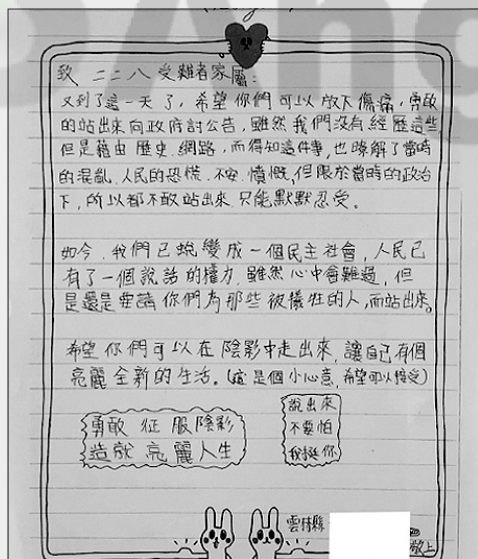 致 二二八受難者家屬:
又到了這一天了,希望你們可以放下傷痛,勇敢
的站出來向政府討公告,雖然我們沒有經歷這些,
但是藉由歷史、網路,而得知這件事,也瞭解了當時
的混亂、人民的恐慌、不安、憤慨,但限於當時的政治
下,所以都不敢站出來,只能默默忍受。
如今,我們已蛻變成一個民主社會,人民已
有了一個說話的權力,雖然心中會難過,但
是還是要請你們為那些被犧牲的人,而站出來。
希望你們可以在陰影中走出來,讓自己有個
亮麗全新的生活。(這是個小心意,希望可以接受)
勇敢 征服陰影
造就 亮麗人生
說出來
不要怕
我挺你
雲林縣
敬上